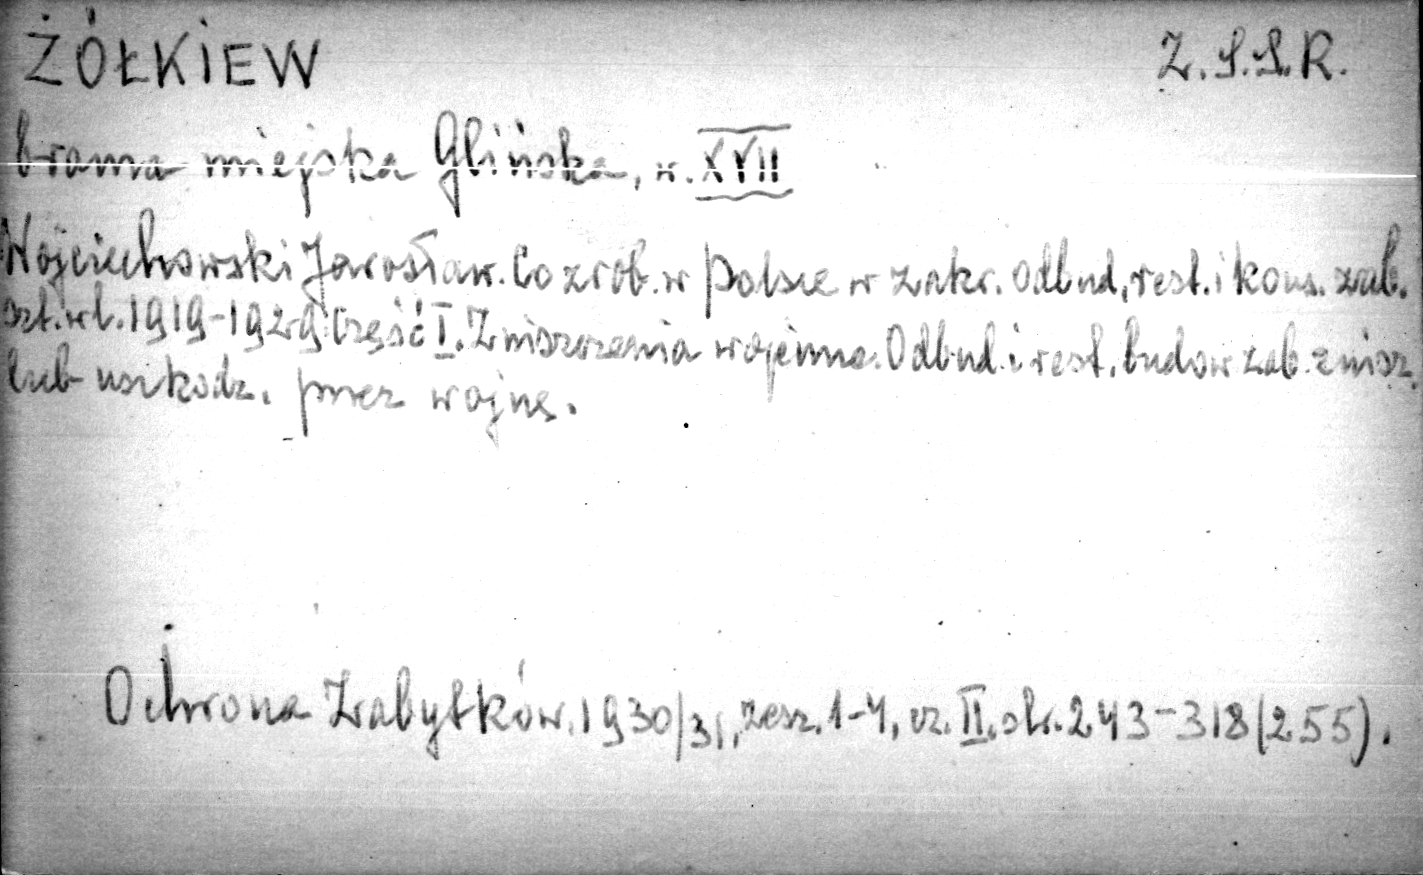 ŻÓŁKIEW
Z.S.S.R.
brama miejska Glińska, w. XVII
Wojciechowski Jarosław. Co zrob. w Polsce w zakr. odbud., rest. i kons. zab.
szt. w l. 1919-1929. Część I. Zniszczenia wojenne. Odbud. i rest. budow zab. znisz.
lub uszkodz. przez wojnę.
Ochrona Zabytków. 1930/31, zesz. 1-4, cz. II. str. 243-318 (255).